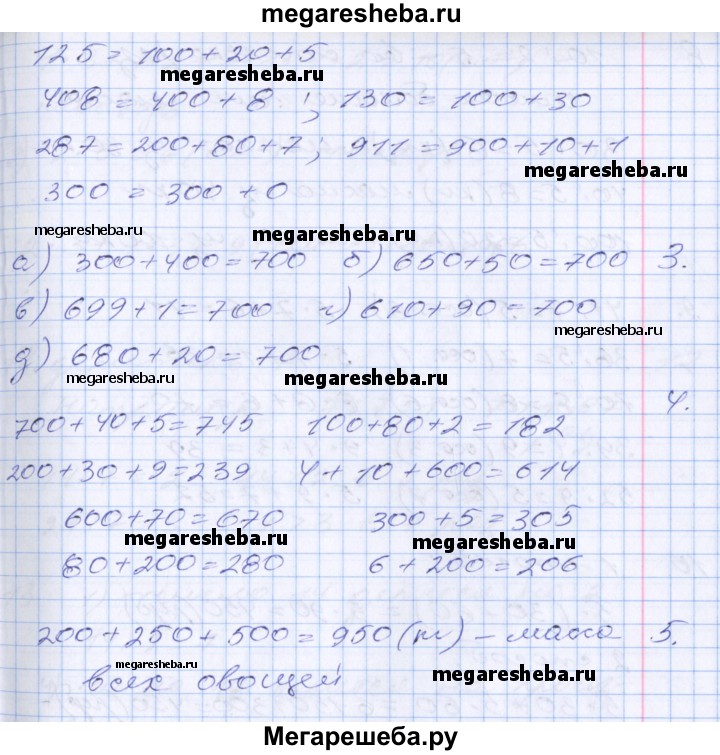 megaresheba.ru
125 = 100 + 20 + 5
megaresheba.ru
408 = 400 + 8 ; 130 = 100 + 30
287 = 200 + 80 + 7 ; 911 = 900 + 10 + 1
megaresheba.ru
300 = 300 + 0
megaresheba.ru megaresheba.ru
а) 300 + 400 = 700 б) 650 + 50 = 700 3.
в) 699 + 1 = 700 г) 610 + 90 = 700
megaresheba.ru
д) 680 + 20 = 700
megaresheba.ru megaresheba.ru
4.
700 + 40 + 5 = 745 100 + 80 + 2 = 182
megaresheba.ru megaresheba.ru
200 + 30 + 9 = 239 4 + 10 + 600 = 614
megaresheba.ru
600 + 70 = 670 300 + 5 = 305
megaresheba.ru megaresheba.ru
80 + 200 = 280 6 + 200 = 206
megaresheba.ru megaresheba.ru
200 + 250 + 500 = 950 (т) – масса 5.
megaresheba.ru megaresheba.ru
всех овощей
Мегарешеба.ру